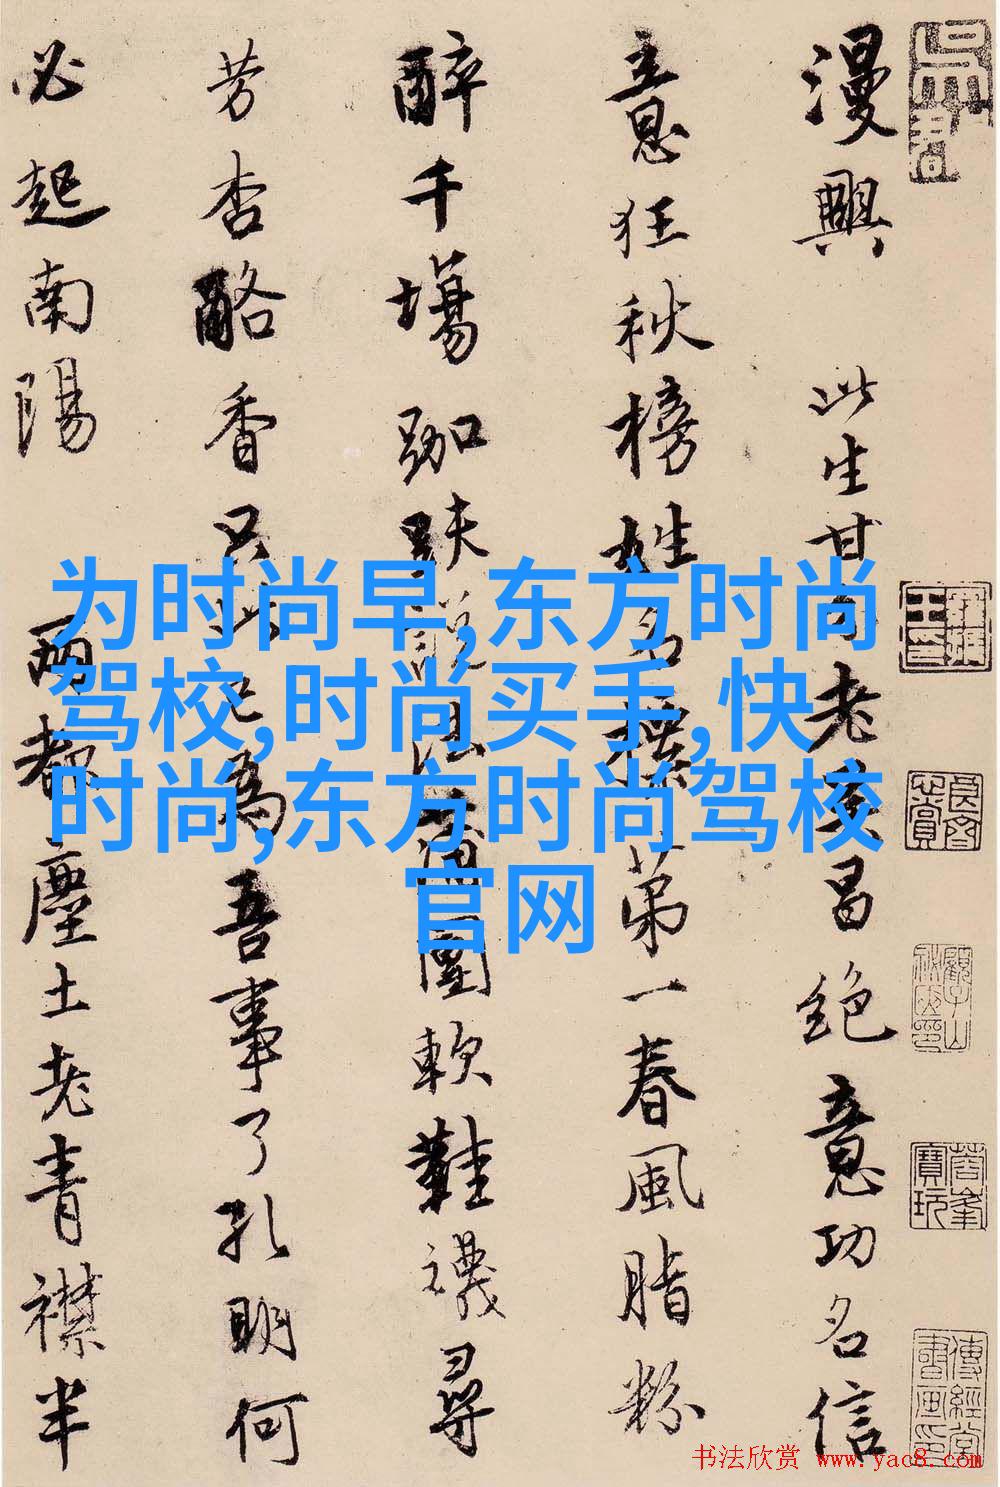 漫興 此生甘分老吳昌絶意功名信
意狂秋榜姓名標第一春風脂粉
醉千場跏趺說法蒲團軟鞋襪尋
芳杏酪香只此已為吾事了孔明何
必起南陽 兩都塵土老青襟半
为时尚早,东方时尚
驾校,时尚买手,快
时尚,东方时尚驾校
官网
书法欣赏 www.yac8.com